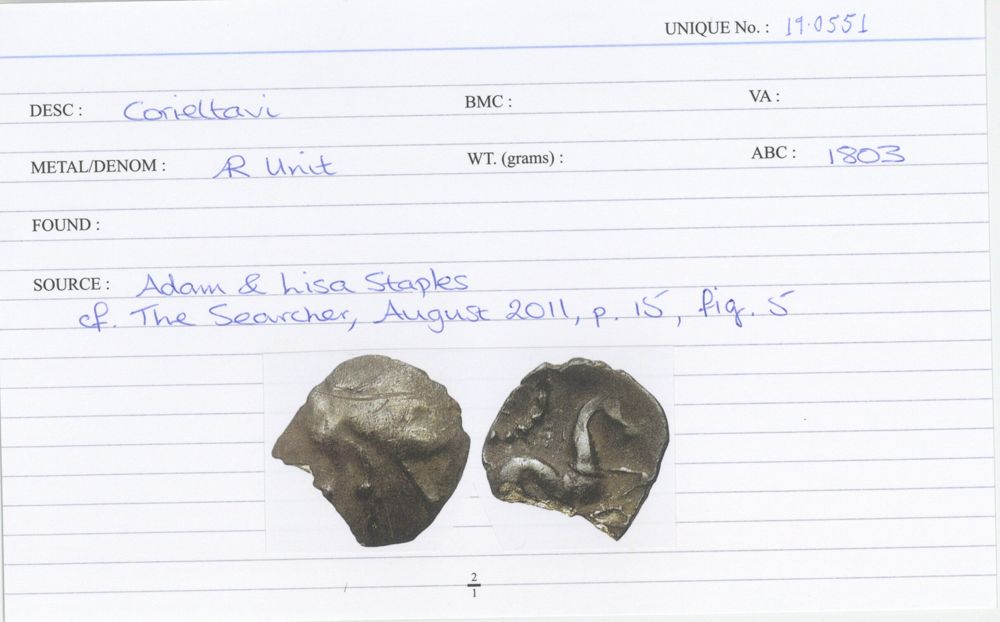 UNIQUE No. : 19.0551
DESC : Corieltavi BMC : VA :
METAL/DENOM : AR Unit WT. (grams) : ABC : 1803
FOUND :
SOURCE : Adam & Lisa Staples
cf. The Searcher, August 2011, p. 15, fig. 5
2
1